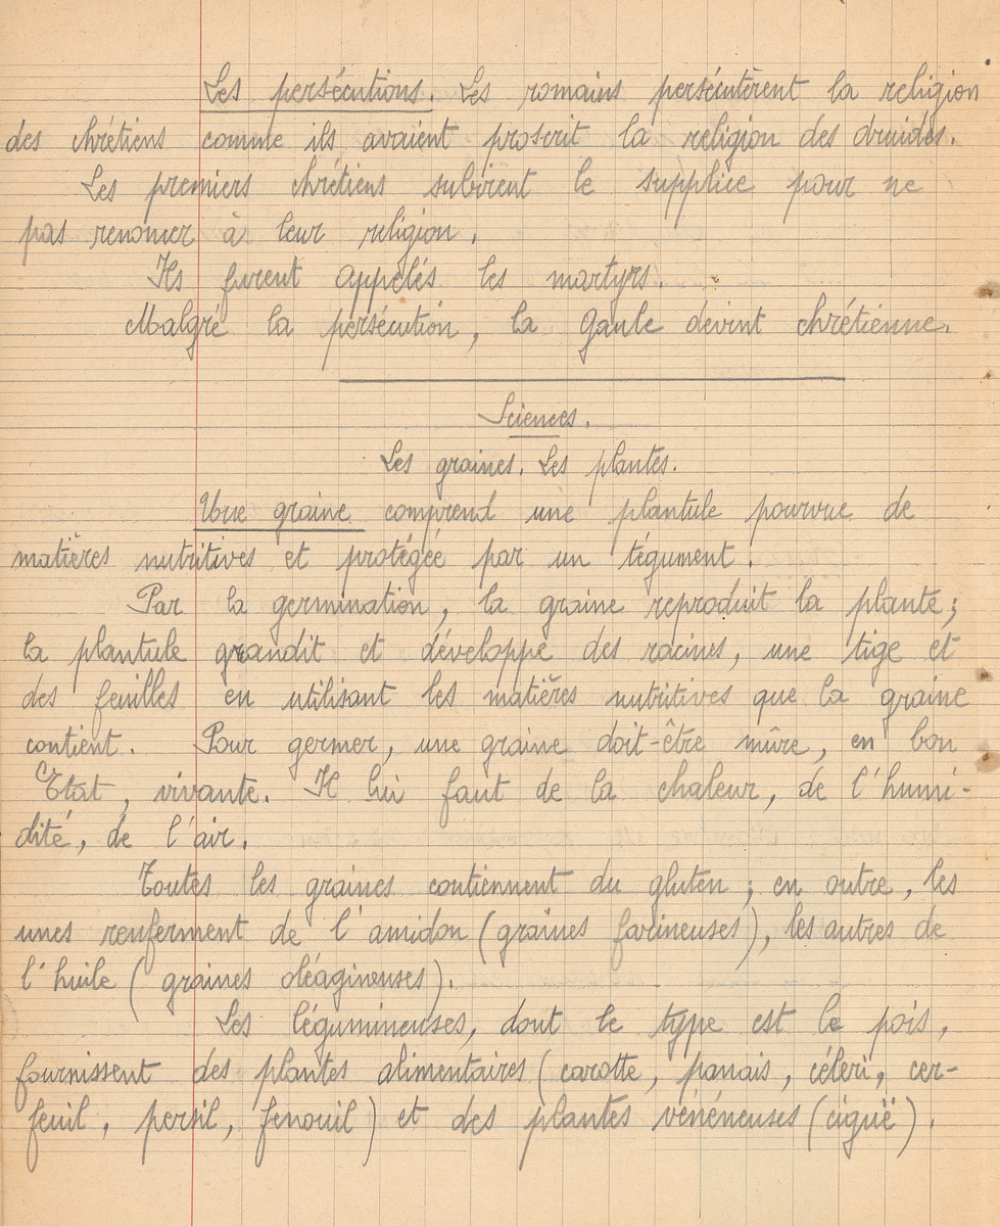 Les persécutions. Les romains persécutèrent la religion
des chrétiens comme ils avaient proscrit la religion des druides.
Les premiers chrétiens subirent le supplice pour ne
pas renoncer à leur religion.
Ils furent appelés les martyrs.
Malgré la persécution, la Gaule devint chrétienne.
Sciences.
Les graines. Les plantes.
Une graine comprend une plantule pourvue de
matières nutritives et protégée par un tégument.
Par la germination, la graine reproduit la plante ;
la plantule grandit et développe des racines, une tige et
des feuilles en utilisant les matières nutritives que la graine
contient. Pour germer, une graine doit-être mûre, en bon
Etat, vivante. Il lui faut de la chaleur, de l'humi-
dité, de l'air.
Toutes les graines contiennent du gluten ; en outre, les
unes renferment de l'amidon (graines farineuses), les autres de
l'huile (graines oléagineuses).
Les légumineuses, dont le type est le pois,
fournissent des plantes alimentaires (carotte, panais, céleri, cer-
feuil, persil, fenouil) et des plantes vénéneuses (ciguë).